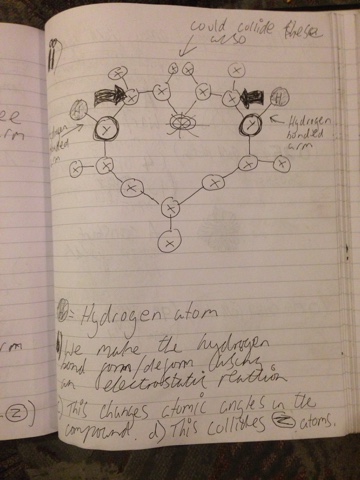 could collide these
also
ii)
X X X X X X
X X X
H H
Y Y
Hydrogen
bonded
arm
Hydrogen
bonded
arm
X X X X
X X
X
X
ee
arm
= Hydrogen atom
We make the hydrogen
bond form/deform using
an electrostatic reaction
c) This changes atomic angles in the
compound. d) This collides Z atoms.
rm
Z)